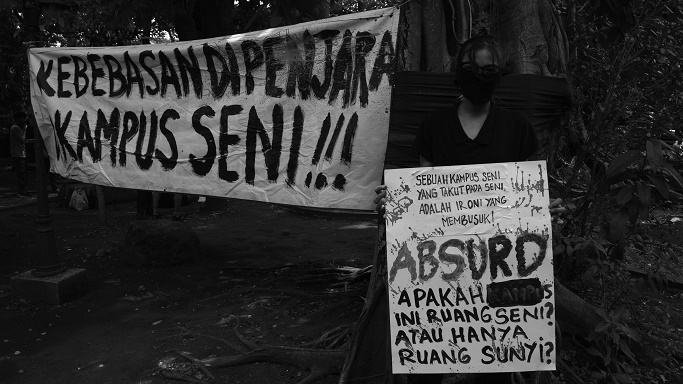 KEBEBASAN DI PENJARA
KAMPUS SENI!!!
SEBUAH KAMPUS SENI
YANG TAKUT PADA SENI,
ADALAH IRONI YANG
MEMBUSUK!
ABSURD
APAKAH KAMPUS
INI RUANG SENI?
ATAU HANYA
RUANG SUNYI?